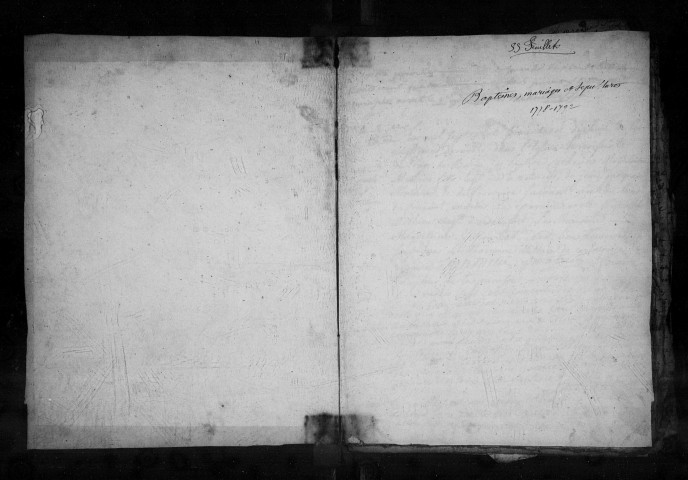 53 feuillets
Baptêmes, mariages et sépultures
1718-1792